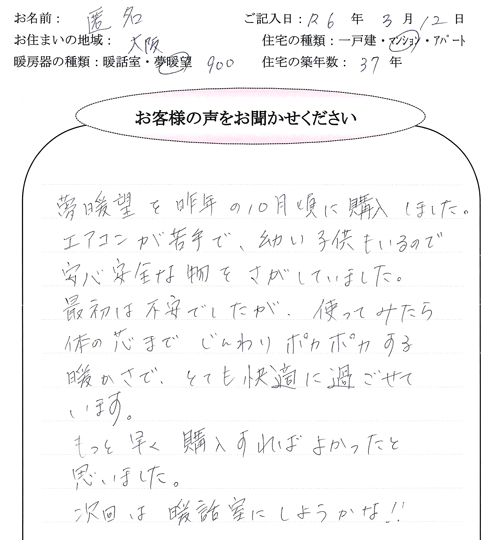 お名前： 匿名 ご記入日：R6 年 3 月 12 日
お住まいの地域： 大阪 住宅の種類：一戸建・マンション・アパート
暖房器の種類：暖話室・夢暖望 900 住宅の築年数： 37 年
お客様の声をお聞かせください
夢暖望を昨年の10月頃に購入しました。
エアコンが苦手で、幼い子供もいるので
安心安全な物をさがしていました。
最初は不安でしたが、使ってみたら
体の芯までじんわりポカポカする
暖かさで、とても快適に過ごせて
います。
もっと早く購入すればよかったと
思いました。
次回は暖話室にしようかな!!